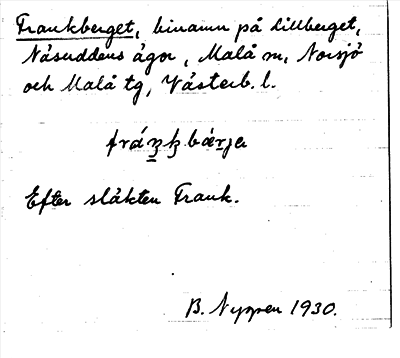 Frankberget, binamn på Lillberget,
Näsuddens ägor, Malå sn, Norsjö
och Malå tg, Västerb. l.
Efter släkten Frank.
B. Nyppen 1930.